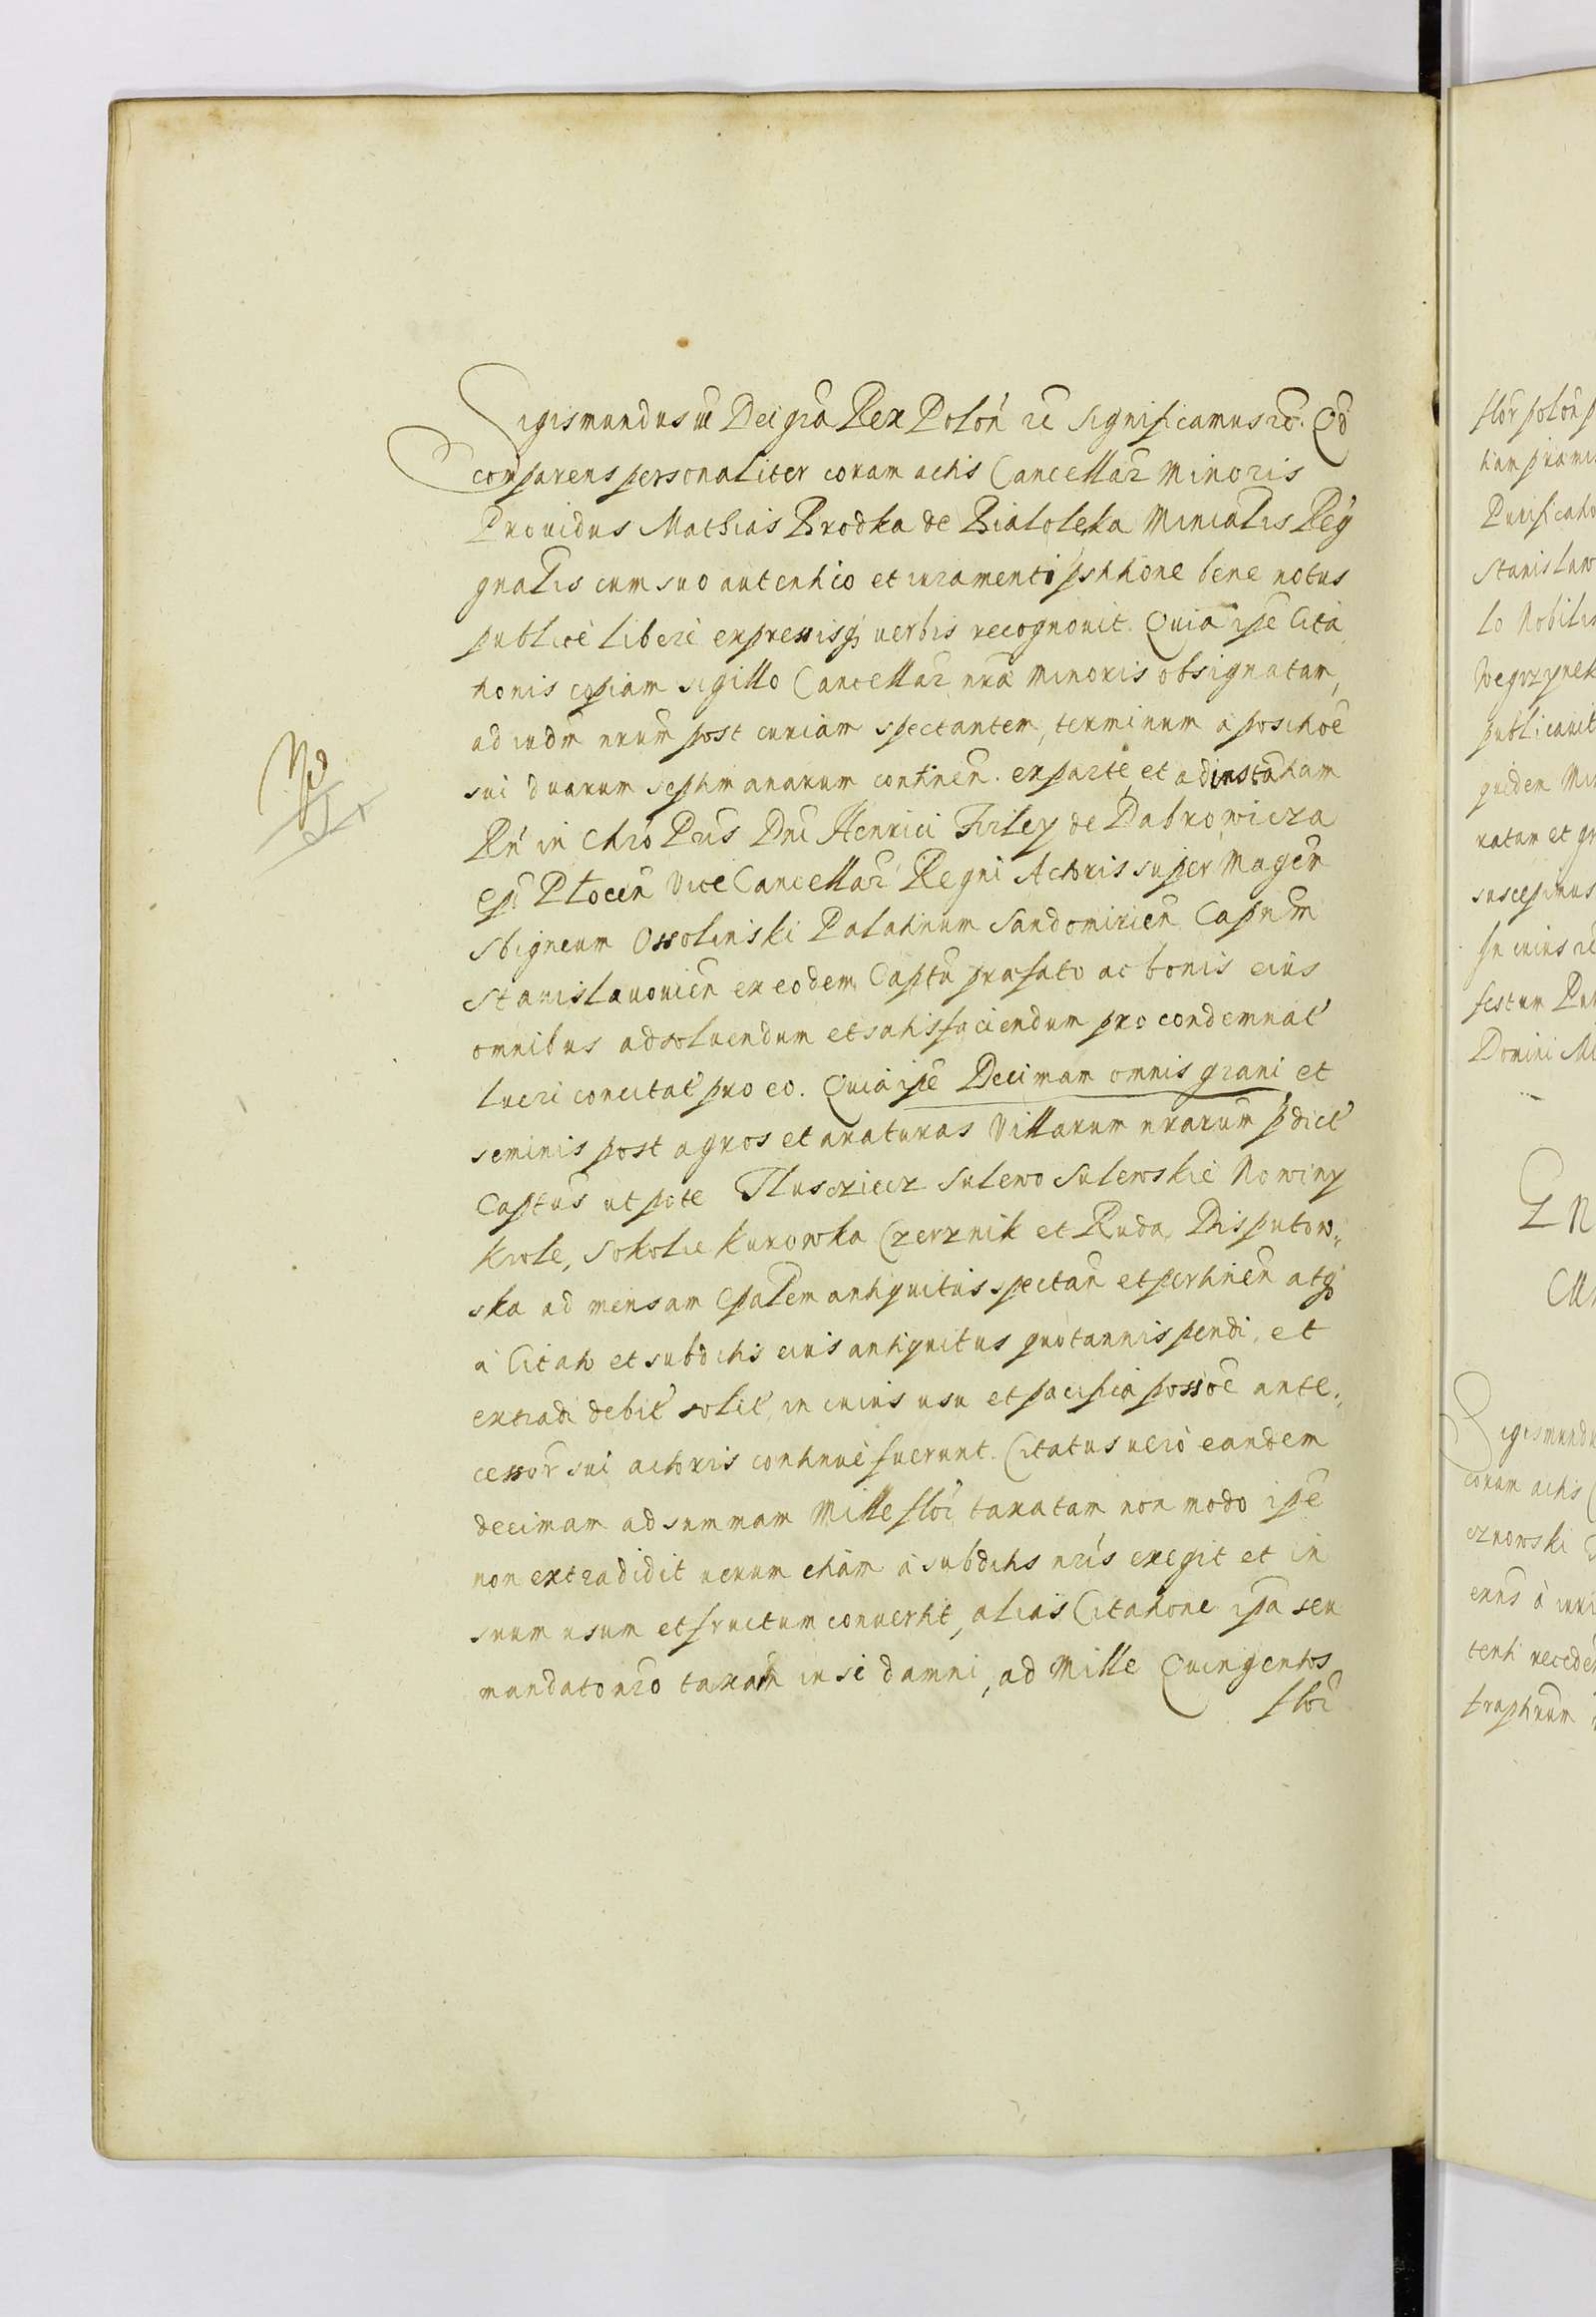 Sigismundus III Dei gra Rex Polon etc Significamus etc. Qd
comparens personaliter coram actis Cancellar Minoris
Prouidus Mathias Brodka de Bialoleka Minialis Reg
gnalis cum suo autentico et iuramenti psttione bene notus
publice libere expressisq verbis recognouit. Quia ipse Cita
tionis copiam sigillo Cancellar nrae Minoris obsignatam,
ad iudm nrum post curiam spectantem, terminum a positioe
sui duarum septimanarum continen. ex parte, et ad instantiam
Rn in Chro Pris Dni Henrici Firley de Dabrowicza
Epi Plocen Vice Cancellar Regni Actoris super Magcm
Sbigneum Ossolinski Palatinum Sandomirien Capneum
Stanislauouien ex eodem Captu prafato ac bonis eius
omnibus ad soluendum et satisfaciendum pro condemnat
lucri concitat pro eo. Quia ipse Decimam omnis grani et
seminis post agros et araturas Villarum nrarum pdict
Captus ut pote Tlusczicz Sulewo Sulewskie Nowiny
Krole, Sokolie Kurowka Czerznik et Ruda Disputow„
ska ad mensam Epalem antiquitus spectan et pertinen atq
a Citato et subditis eius antiquitus quotannis pendi, et
extradi debit solit, in cuius usu et pacifica possoe ante„
cessor sui actoris continue fuerunt. Citatus uero eandem
decimam ad summam Mille flor taxatam non modo ipse
non extradidit uerum etiam a subditis nris exegit et in
suum usum et fructum conuertit, alias Citatione ipsa seu
mandato nro taxam in se damni, ad Mille Quingentos
flor
flor polon p
Purificatio
Stanislaw
lo Nobilis
Wegrzynek
publicauit
quidem Min
ratam et gr
suscepimus
In cuius re
festum Pur
Domini Mi
Sigismundu
coram actis
cznowski